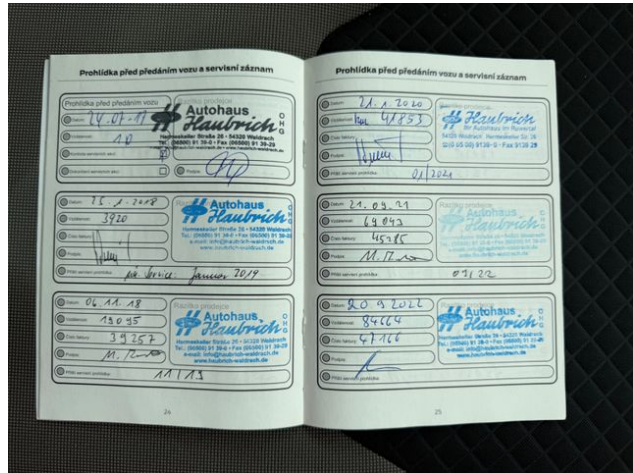 Prohlídka před předáním vozu a servisní záznam
Prohlídka před předáním vozu
Datum: 24.07.17
Vzdálenost: 10
Podpis:
Autohaus
Haubrich
OHG
Hermeskeiler Straße 26 • 54320 Waldrach
Tel. (06500) 91 39-0 • Fax (06500) 91 39-29
Datum: 25.1.2018
Vzdálenost: 3920
Číslo faktury:
Podpis:
Příští servisní prohlídka: Januar 2019
Razítko prodejce
Autohaus
Haubrich
OHG
Hermeskeiler Straße 26 • 54320 Waldrach
Tel. (06500) 91 39-0 • Fax (06500) 91 39-29
e-mail: info@haubrich-waldrach.de
www.haubrich-waldrach.de
Datum: 06.11.18
Vzdálenost: 19095
Číslo faktury: 39257
Podpis:
Příští servisní prohlídka: 11/19
Razítko prodejce
Autohaus
Haubrich
OHG
Hermeskeiler Straße 26 • 54320 Waldrach
Tel. (06500) 91 39-0 • Fax (06500) 91 39-29
e-mail: info@haubrich-waldrach.de
www.haubrich-waldrach.de
24
Prohlídka před předáním vozu a servisní záznam
Datum: 21.1.2020
Vzdálenost: 41853
Podpis:
Příští servisní prohlídka: 01/2021
Autohaus
Haubrich
Ihr Autohaus im Ruwertal
54320 Waldrach Hermeskeiler Str. 26
Datum: 21.09.21
Vzdálenost: 69043
Číslo faktury: 45285
Podpis:
Příští servisní prohlídka: 09/22
Autohaus
Haubrich
OHG
Hermeskeiler Straße 26 • 54320 Waldrach
Tel. (06500) 91 39-0 • Fax (06500) 91 39-29
e-mail: info@haubrich-waldrach.de
www.haubrich-waldrach.de
Datum: 20 9 2022
Vzdálenost: 84664
Číslo faktury: 47166
Podpis:
Příští servisní prohlídka:
Razítko prodejce
Autohaus
Haubrich
OHG
Hermeskeiler Straße 26 • 54320 Waldrach
Tel. (06500) 91 39-0 • Fax (06500) 91 39-29
e-mail: info@haubrich-waldrach.de
www.haubrich-waldrach.de
25